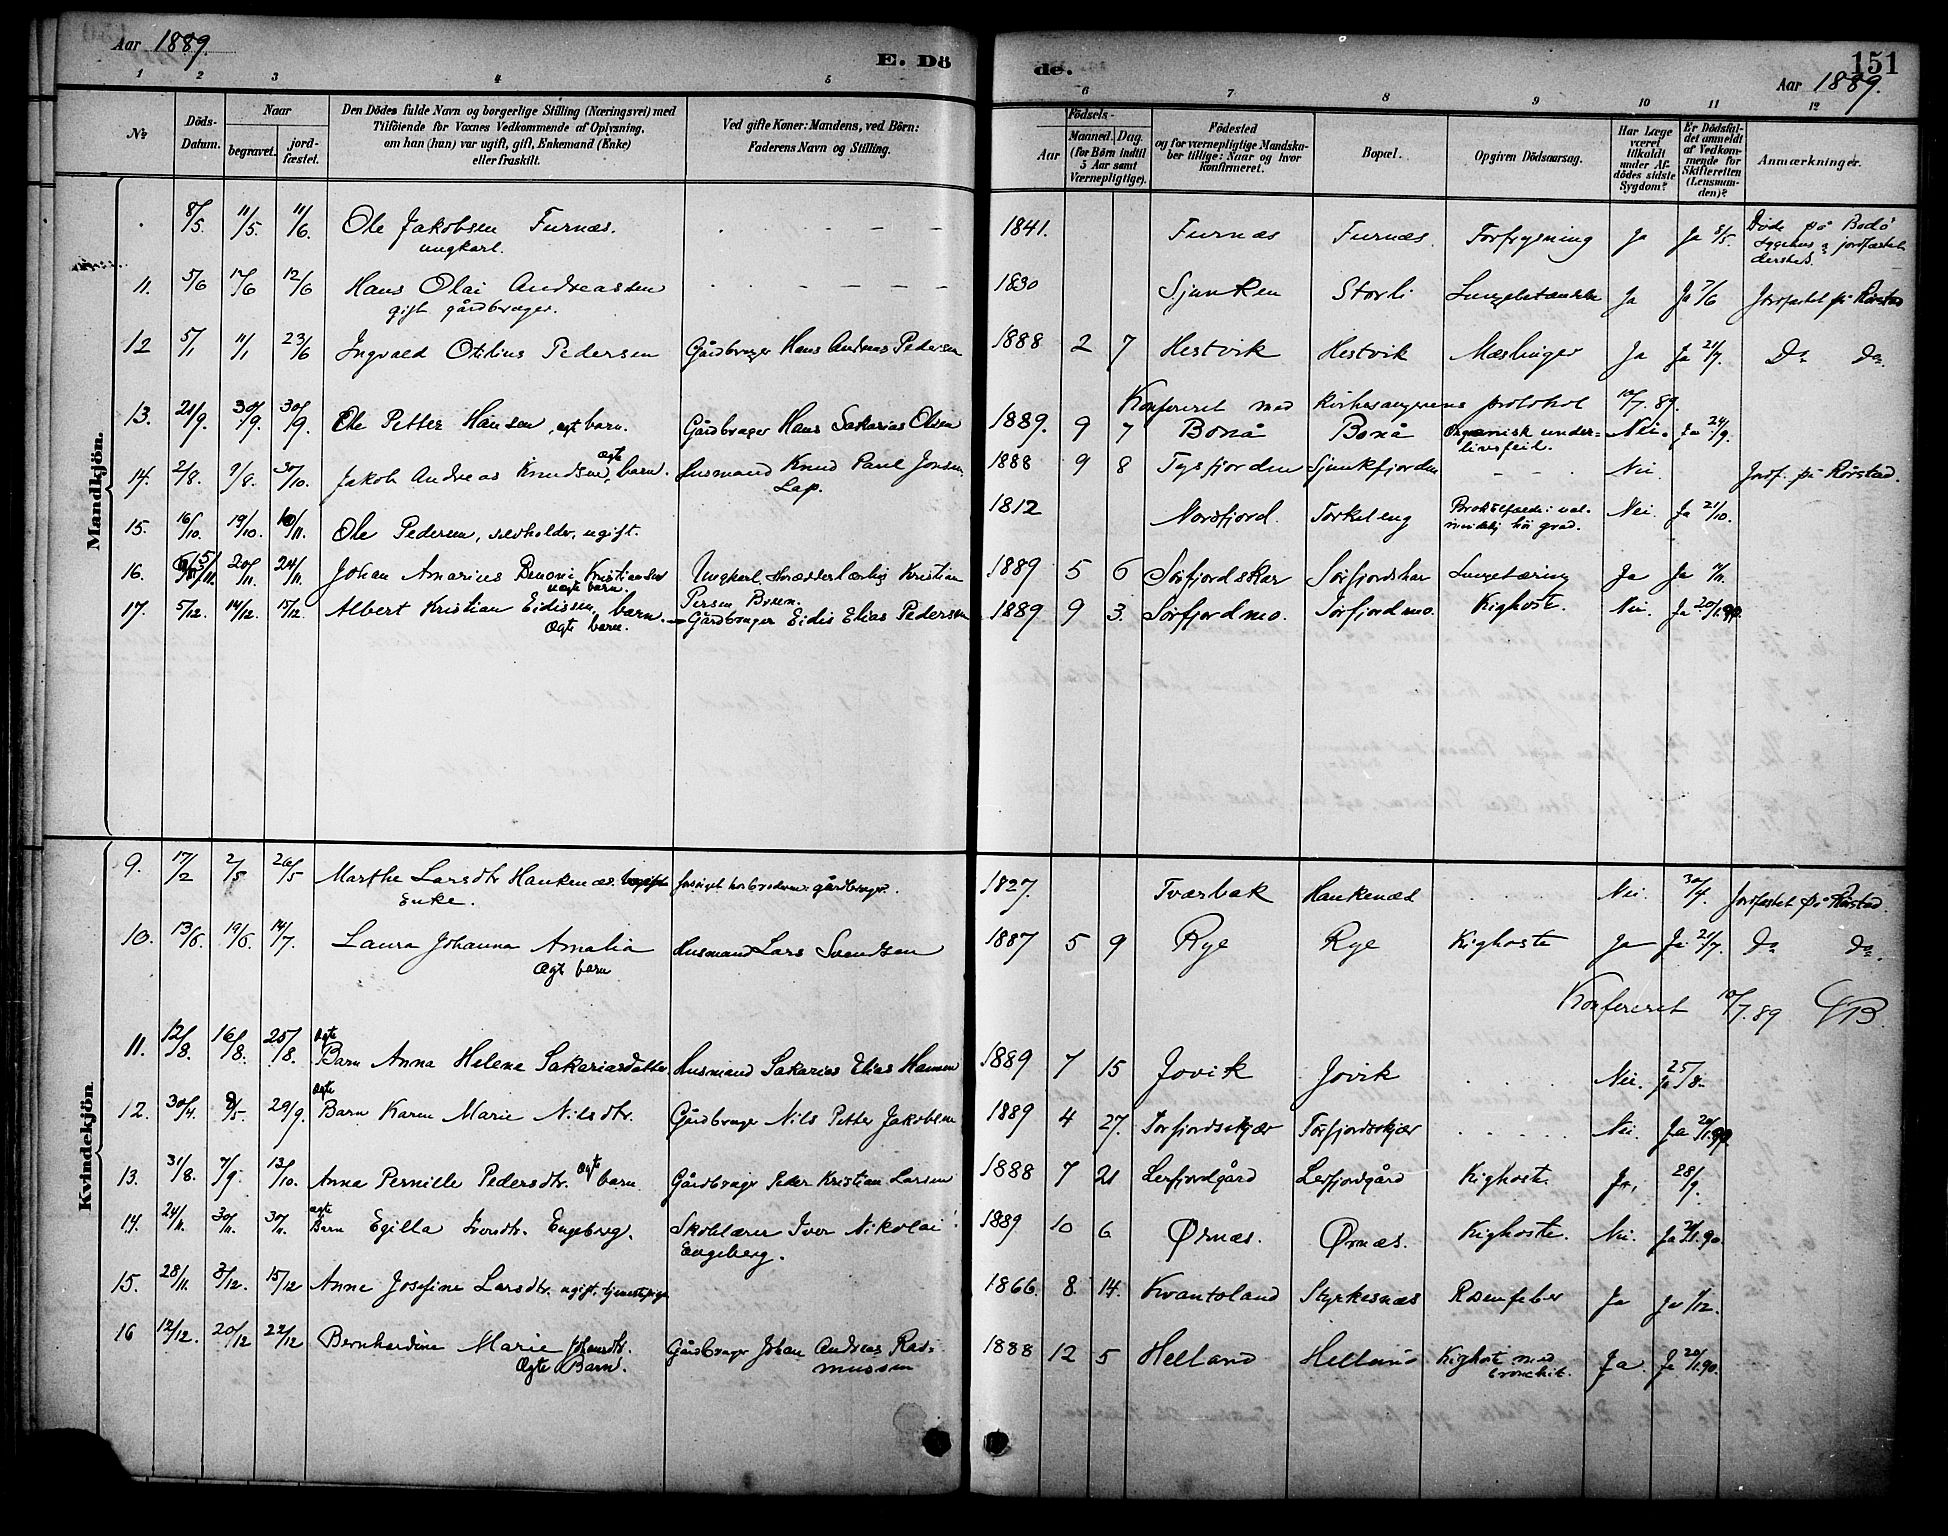 Aar 1889.
E. Dö
de.
151
Aar 1889.
1 2 3 4 5 6 7 8 9 10 11 12
No
Döds-
Datum.
Naar
begravet.
jord-
fæstet.
Den Dödes fulde Navn og borgerlige Stilling (Næringsvei) med
Tilföiende for Voxnes Vedkommende af Oplysning,
om han (hun) var ugift, gift, Enkemand (Enke)
eller fraskilt.
Ved gifte Koner: Mandens, ved Börn:
Faderens Navn og Stilling.
Födsels-
Aar
Maaned. Dag.
(for Börn indtil
5 Aar samt
Værnepligtige).
Födested
og for værnepligtige Mandska-
ber tillige: Naar og hvor
konfirmeret.
Bopæl.
Opgiven Dödsaarsag.
Har Læge
været
tilkaldt
under Af-
dödes sidste
Sygdom?
Er Dödsfal-
det anmeldt
af Vedkom-
mende for
Skifteretten
(Lensman-
den)?
Anmærkninger.
Mandkjön.
8/5. 11/5. 11/6. Ole Jakobsen Furnæs. 1841. Furnæs Furnæs. Forfrysning Ja Ja 8/5. Døde på Bodø
ungkarl. Sygehus & jordfæstet
dersted.
11. 5/6 17/6 12/6 Hans Olai Andreassen 1830 Sjunken Storli Lungebetændelse Ja Ja 7/6 Jordfæstet på Rørstad
gift gårdbruger.
12 5/1 11/1 23/6 Ingvald Otilius Pedersen Gårdbruger Hans Andreas Pedersen 1888 2 7 Hestvik Hestvik Mæslinger Ja Ja 21/7. Do do.
Konfereret med kirkesangerens protokol 10/7. 89.
13. 21/9. 30/9. 30/9. Ole Petter Hansen, ægt barn. Gårdbruger Hans Sakarias Olsen 1889. 9 7 Bonå Bonå Organisk under- Nei. Ja 24/9.
livsfeil.
14. 2/8. 9/8. 30/10. Jakob Andreas Knudsen, ægte barn. Husmand Knud Paul Jonsen 1888 9 8 Tysfjorden Sjunkfjorden Nei. Jordf. på Rørstad.
Lap.
15. 16/10. 19/10. 10/11. Ole Pedersen, selvholder, ugift. 1812 Nordfjord. Torkeleng Nei. Ja 21/10.
høi grad.
16. 20/11. 24/11. Johan Amarius Benoni Kristiansen Ungkarl, Kristian 1889 5 6 Sørfjordskar Sørfjordskar Lungetæring Ja Ja
uægte barn. Persen
17. 5/12. 14/12. 15/12. Albert Kristian Eidissen, barn. Gårdbruger Eidis Elias Pedersen 1889 9 3. Sørfjordmo. Sørfjordmo. Kighoste. Nei. Ja 20/1.90.
Ægte barn.
Kvindekjön.
9. 17/2 2/5 26/5 Marthe Larsdtr Hankenæs. forsørget hos broderen: gårdbruger. 1827. Tværbak Hankenæs Nei. 30/4. Jordfæstet på Rørstad.
Enke.
10. 13/6. 19/6. 14/7. Laura Johanna Amalia Husmand Lars Svendsen 1887 5 9 Rye Rye Kighoste Ja Ja 21/7. Do do.
Ægte barn
Konfereret 10/7.89
11. 12/8. 16/8. 25/8. Ægte Barn Anna Helene Sakariasdatter. Husmand Sakarias Elias Hansen 1889 7 15 Jovik Jovik Nei. Ja 25/8.
12. 30/4. 29/9. Ægte Barn Karen Marie Nilsdtr. Gårdbruger Nils Petter Jakobsen 1889 4 27. Tørfjordskjær Tørfjordskjær Nei. Ja 20/1.90.
13. 31/8. 7/9. 13/10. Anna Pernille Pedersdtr. Ægte barn Gårdbruger Peder Kristian Larsen 1888 7 21 Lerfjordgård Lerfjordgård Kighoste. Ja, 28/9.
14. 24/11. 30/11. 30/11. ægte Barn Egilla Iversdtr. Engeberg. Skolelærer Iver Nikolai 1889 10 6 Ørnæs. Ørnæs. Kighoste. Nei. Ja 20/1.90.
Engeberg.
15. 28/11. 8/12. 15/12 Anne Josefine Larsdtr. ugift tjenestepige 1866. 8. 14. Kvantoland Styrkesnæs Rosenfeber Ja Ja 1/12.
16 12/12. 20/12 22/12 Bernhardine Marie Johansdtr. Gårdbruger Johan Andreas Ras- 1888 12 5 Helland Helland Kighoste med Ja. Ja 20/1.90.
Ægte Barn. mussen bronchit.